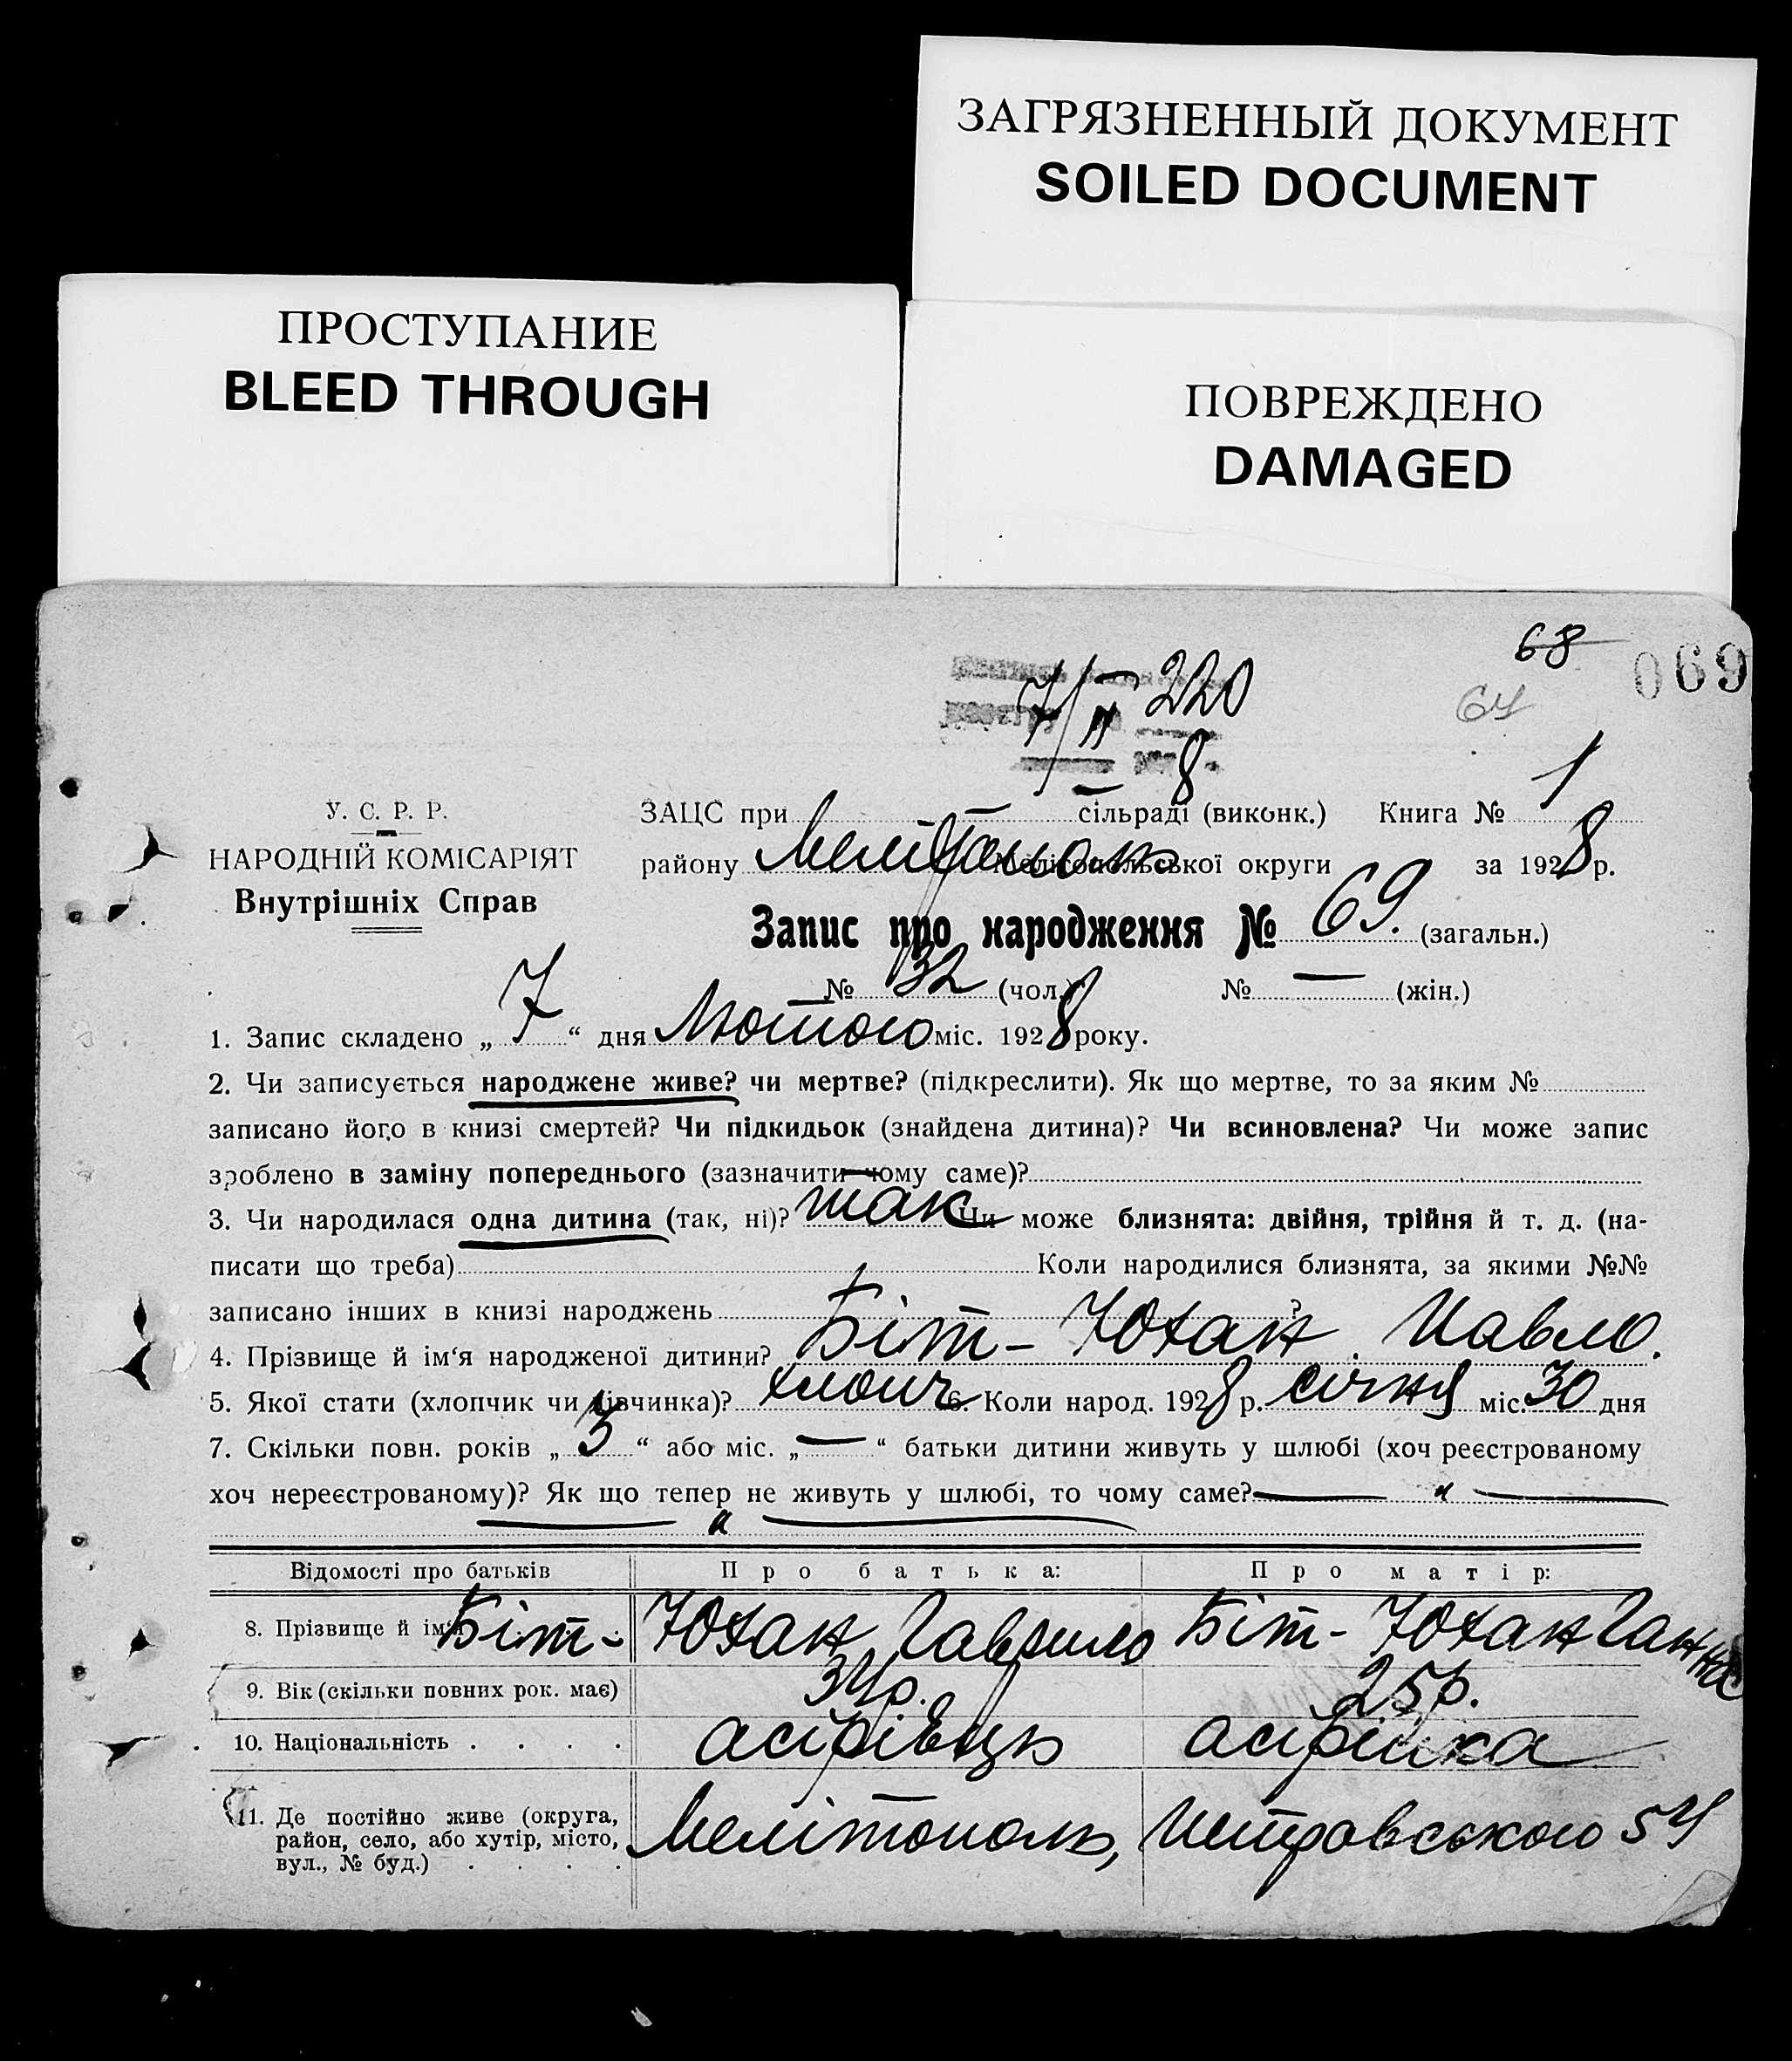 ЗАГРЯЗНЕННЫЙ ДОКУМЕНТ
SOILED DOCUMENT
ПРОСТУПАНИЕ
BLEED THROUGH
ПОВРЕЖДЕНО
DAMAGED
68
069
64
7/II 220
8
У. С. Р. Р.
НАРОДНІЙ КОМІСАРІЯТ
Внутрішніх Справ
ЗАЦС при — сільраді (виконк.) Книга № 1
району Мелітополь Мелітопольської округи за 1928 р.
Запис про народження № 69. (загальн.)
№ 32 (чол.) № — (жін.)
1. Запис складено „ 7 “ дня Лютого міс. 1928 року.
2. Чи записується народжене живе? чи мертве? (підкреслити). Як що мертве, то за яким №
записано його в книзі смертей? Чи підкидьок (знайдена дитина)? Чи всиновлена? Чи може запис
зроблено в заміну попереднього (зазначити чому саме)?
3. Чи народилася одна дитина (так, ні)? так Чи може близнята: двійня, трійня й т. д. (на-
писати що треба) Коли народилися близнята, за якими №№
записано інших в книзі народжень ?
4. Прізвище й ім‘я народженої дитини? Біт-Юхан Павло.
5. Якої стати (хлопчик чи дівчинка)? хлопч 6. Коли народ. 1928 р. січня міс. 30 дня
7. Скільки повн. років „ 3 “ або міс. „ — “ батьки дитини живуть у шлюбі (хоч реєстрованому
хоч нереєстрованому)? Як що тепер не живуть у шлюбі, то чому саме? — „ —
— „ —
Відомості про батьків Про батька: Про матір:
8. Прізвище й ім‘я Біт-Юхан Гаврило Біт-Юхан Ганна
9. Вік (скільки повних рок. має) 34 р. 25 р.
10. Національність . . . . асірієць асірійка
11. Де постійно живе (округа,
район, село, або хутір, місто,
вул., № буд.) . . . . Мелітополь, Петровського 54